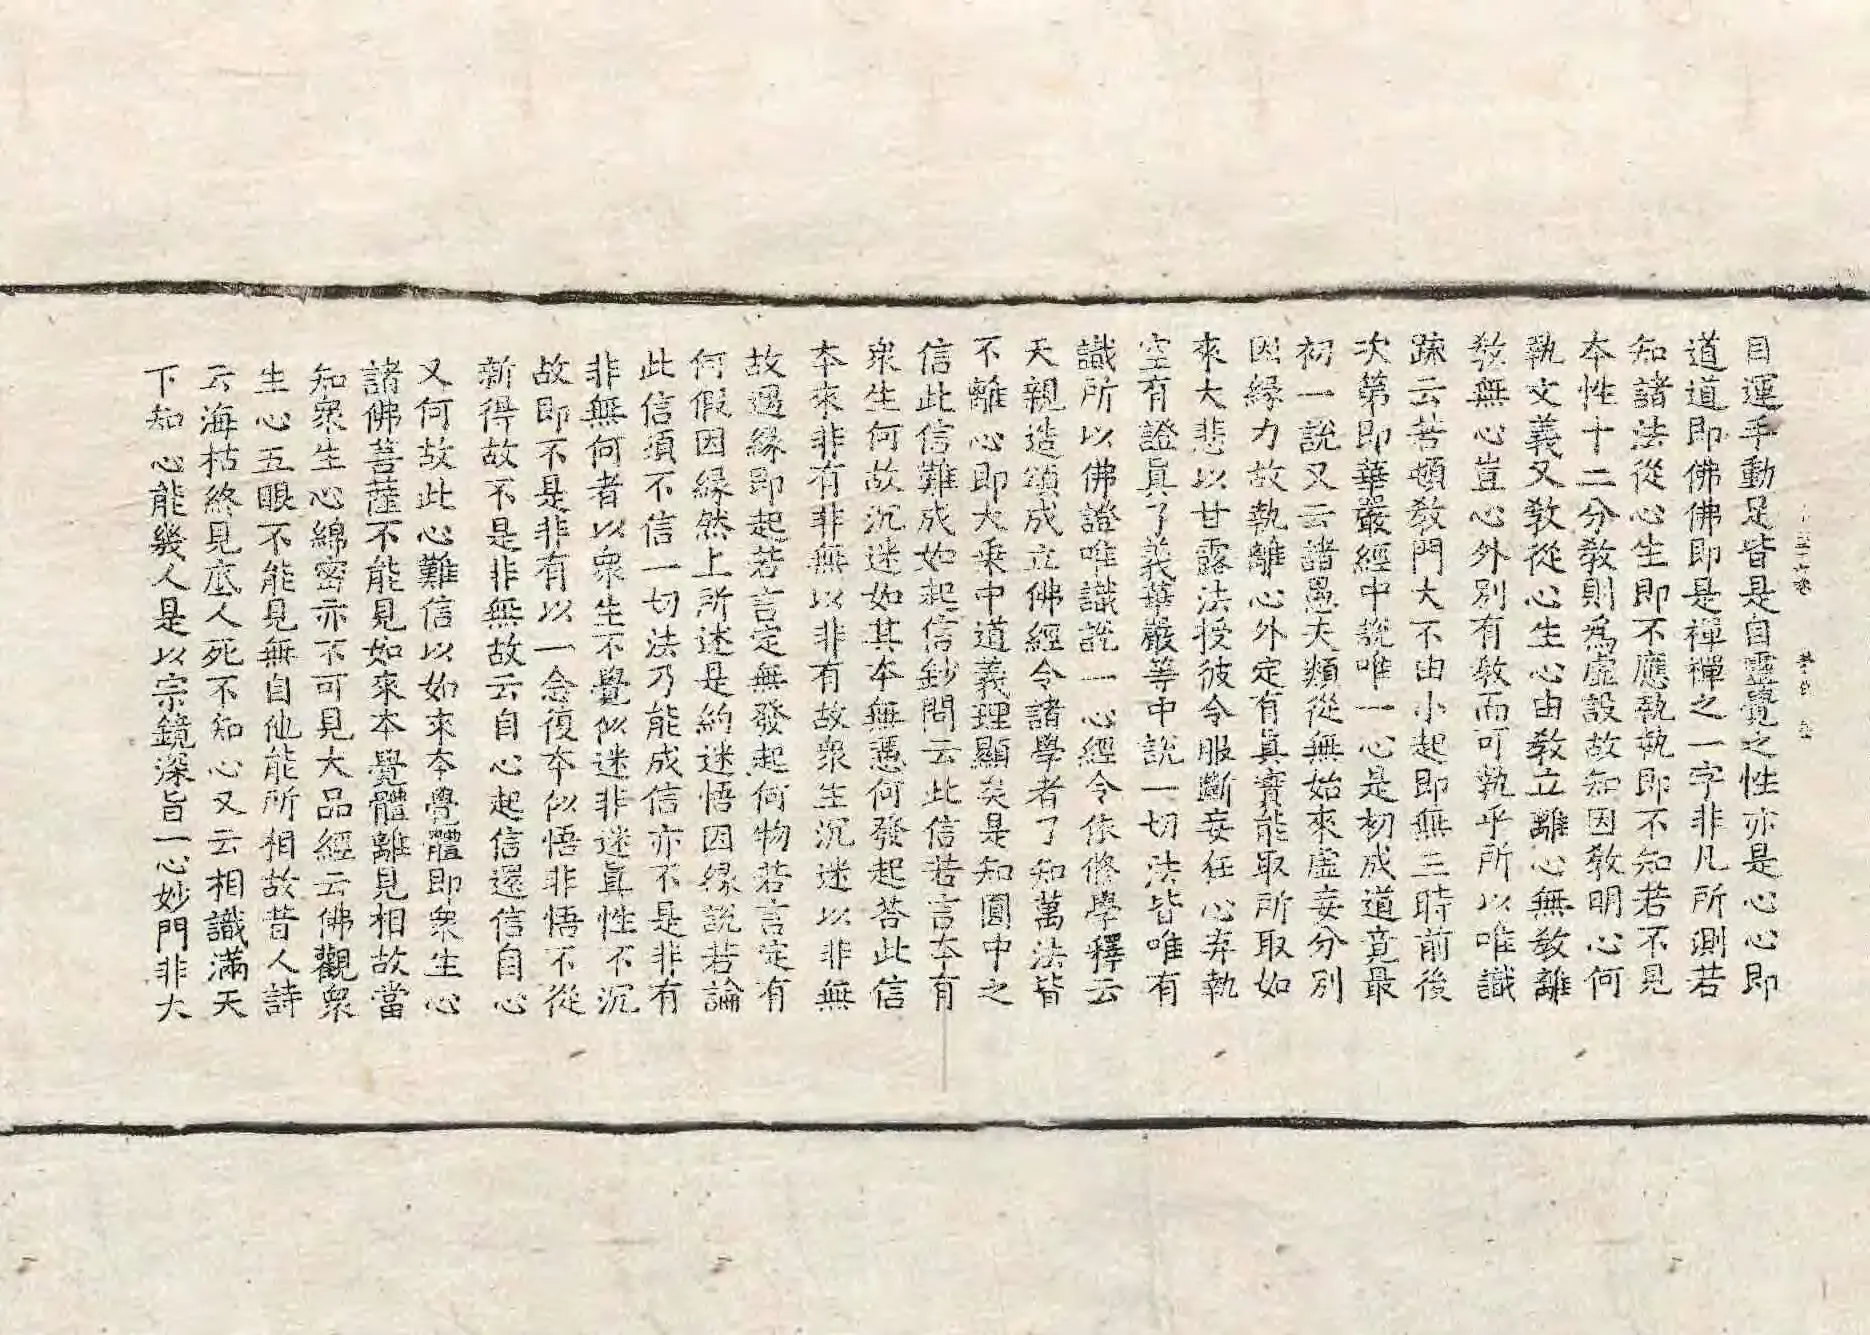 目運手動足皆是自靈覺之性亦是心心即
道道即佛佛即是禪禪之一字非凡所測若
知諸法從心生即不應執執即不知若不見
本性十二分教則爲虛設故知因教明心何
執文義又教從心生心由教立離心無教離
教無心豈心外別有教而可執乎所以唯識
疏云若頓教門大不由小起即無三時前後
次第即華嚴經中說唯一心是初成道竟最
初一說又云諸愚夫類從無始來虛妄分別
因緣力故執離心外定有眞實能取所取如
來大悲以甘露法授彼令服斷妄狂心弃執
空有證眞了義華嚴等中說一切法皆唯有
識所以佛證唯識說一心經令依修學釋云
天親造頌成立佛經令諸學者了知萬法皆
不離心即大乘中道義理顯矣是知圓中之
信此信難成如起信鈔問云此信若言本有
衆生何故沉迷如其本無憑何發起荅此信
本來非有非無以非有故衆生沉迷以非無
故遇緣即起若言定無發起何物若言定有
何假因緣然上所述是約迷悟因緣說若論
此信須不信一切法乃能成信亦不是非有
非無何者以衆生不覺似迷非迷眞性不沉
故即不是非有以一念復本似悟非悟不從
新得故不是非無故云自心起信還信自心
又何故此心難信以如來本覺體即衆生心
諸佛菩薩不能見如來本覺體離見相故當
知衆生心綿密亦不可見大品經云佛觀衆
生心五眼不能見無自他能所相故昔人詩
云海枯終見底人死不知心又云相識滿天
下知心能幾人是以宗鏡深旨一心妙門非大